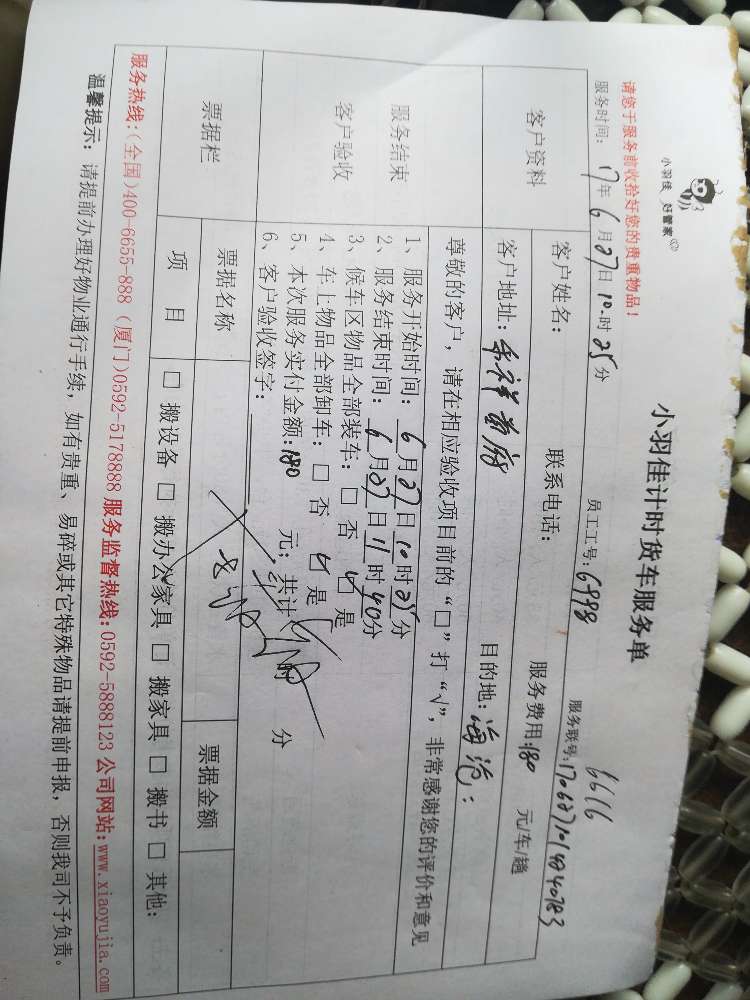 小羽佳 好管家
小羽佳计时货车服务单
6616
请您于服务前收拾好您的贵重物品！
服务时间：17年6月27日10时25分 员工工号：6998 服务联号：
客户资料
客户姓名： 联系电话： 服务费用：180 元/车/趟
客户地址： 目的地：海沧：
服务结束
客户验收
尊敬的客户，请在相应验收项目前的“□”打“√”，非常感谢您的评价和意见
1、服务开始时间：6月27日10时25分
2、服务结束时间：6月27日11时40分
3、候车区物品全部装车：□ 否 ☑ 是
4、车上物品全部卸车：□ 否 ☑ 是
5、本次服务实付金额：180 元；共计 时 分
6、客户验收签字：
票据栏
票据名称 票据金额
项 目 □ 搬设备 □ 搬办公家具 □ 搬家具 □ 搬书 □ 其他：
服务热线：（全国）400-6655-888（厦门）0592-5178888 服务监督热线：0592-5888123 公司网站：www.xiaoyujia.com
温馨提示：请提前办理好物业通行手续，如有贵重、易碎或其它特殊物品请提前申报，否则我司不予负责。